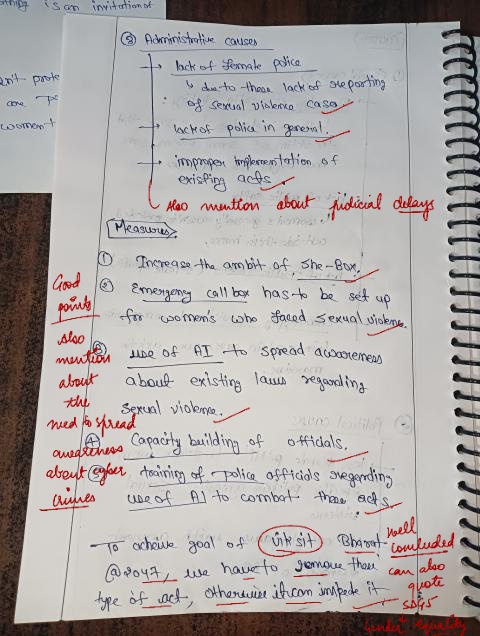 ning is an invitation of
en't prote
are
women
③ Administrative causes
→ lack of female police
↳ due to these lack of reporting
of sexual violence case
→ lack of police in general.
→ improper implementation of
existing acts.
Also mention about judicial delays
Measures
① Increase the ambit of She-Box.
② Emergency call box has to be set up
for women's who faced sexual violence.
③ use of AI to spread awareness
about existing laws regarding
sexual violence.
④ Capacity building of officials.
⑤ training of police officials regarding
use of AI to combat these acts.
Good
points
Also
mention
about
the
need to spread
awareness
about cyber
crimes
To achieve goal of Viksit Bharat
@2047, we have to remove these
type of act, otherwise it can impede it.
Well
concluded
can also
quote
SDG5
Gender equality